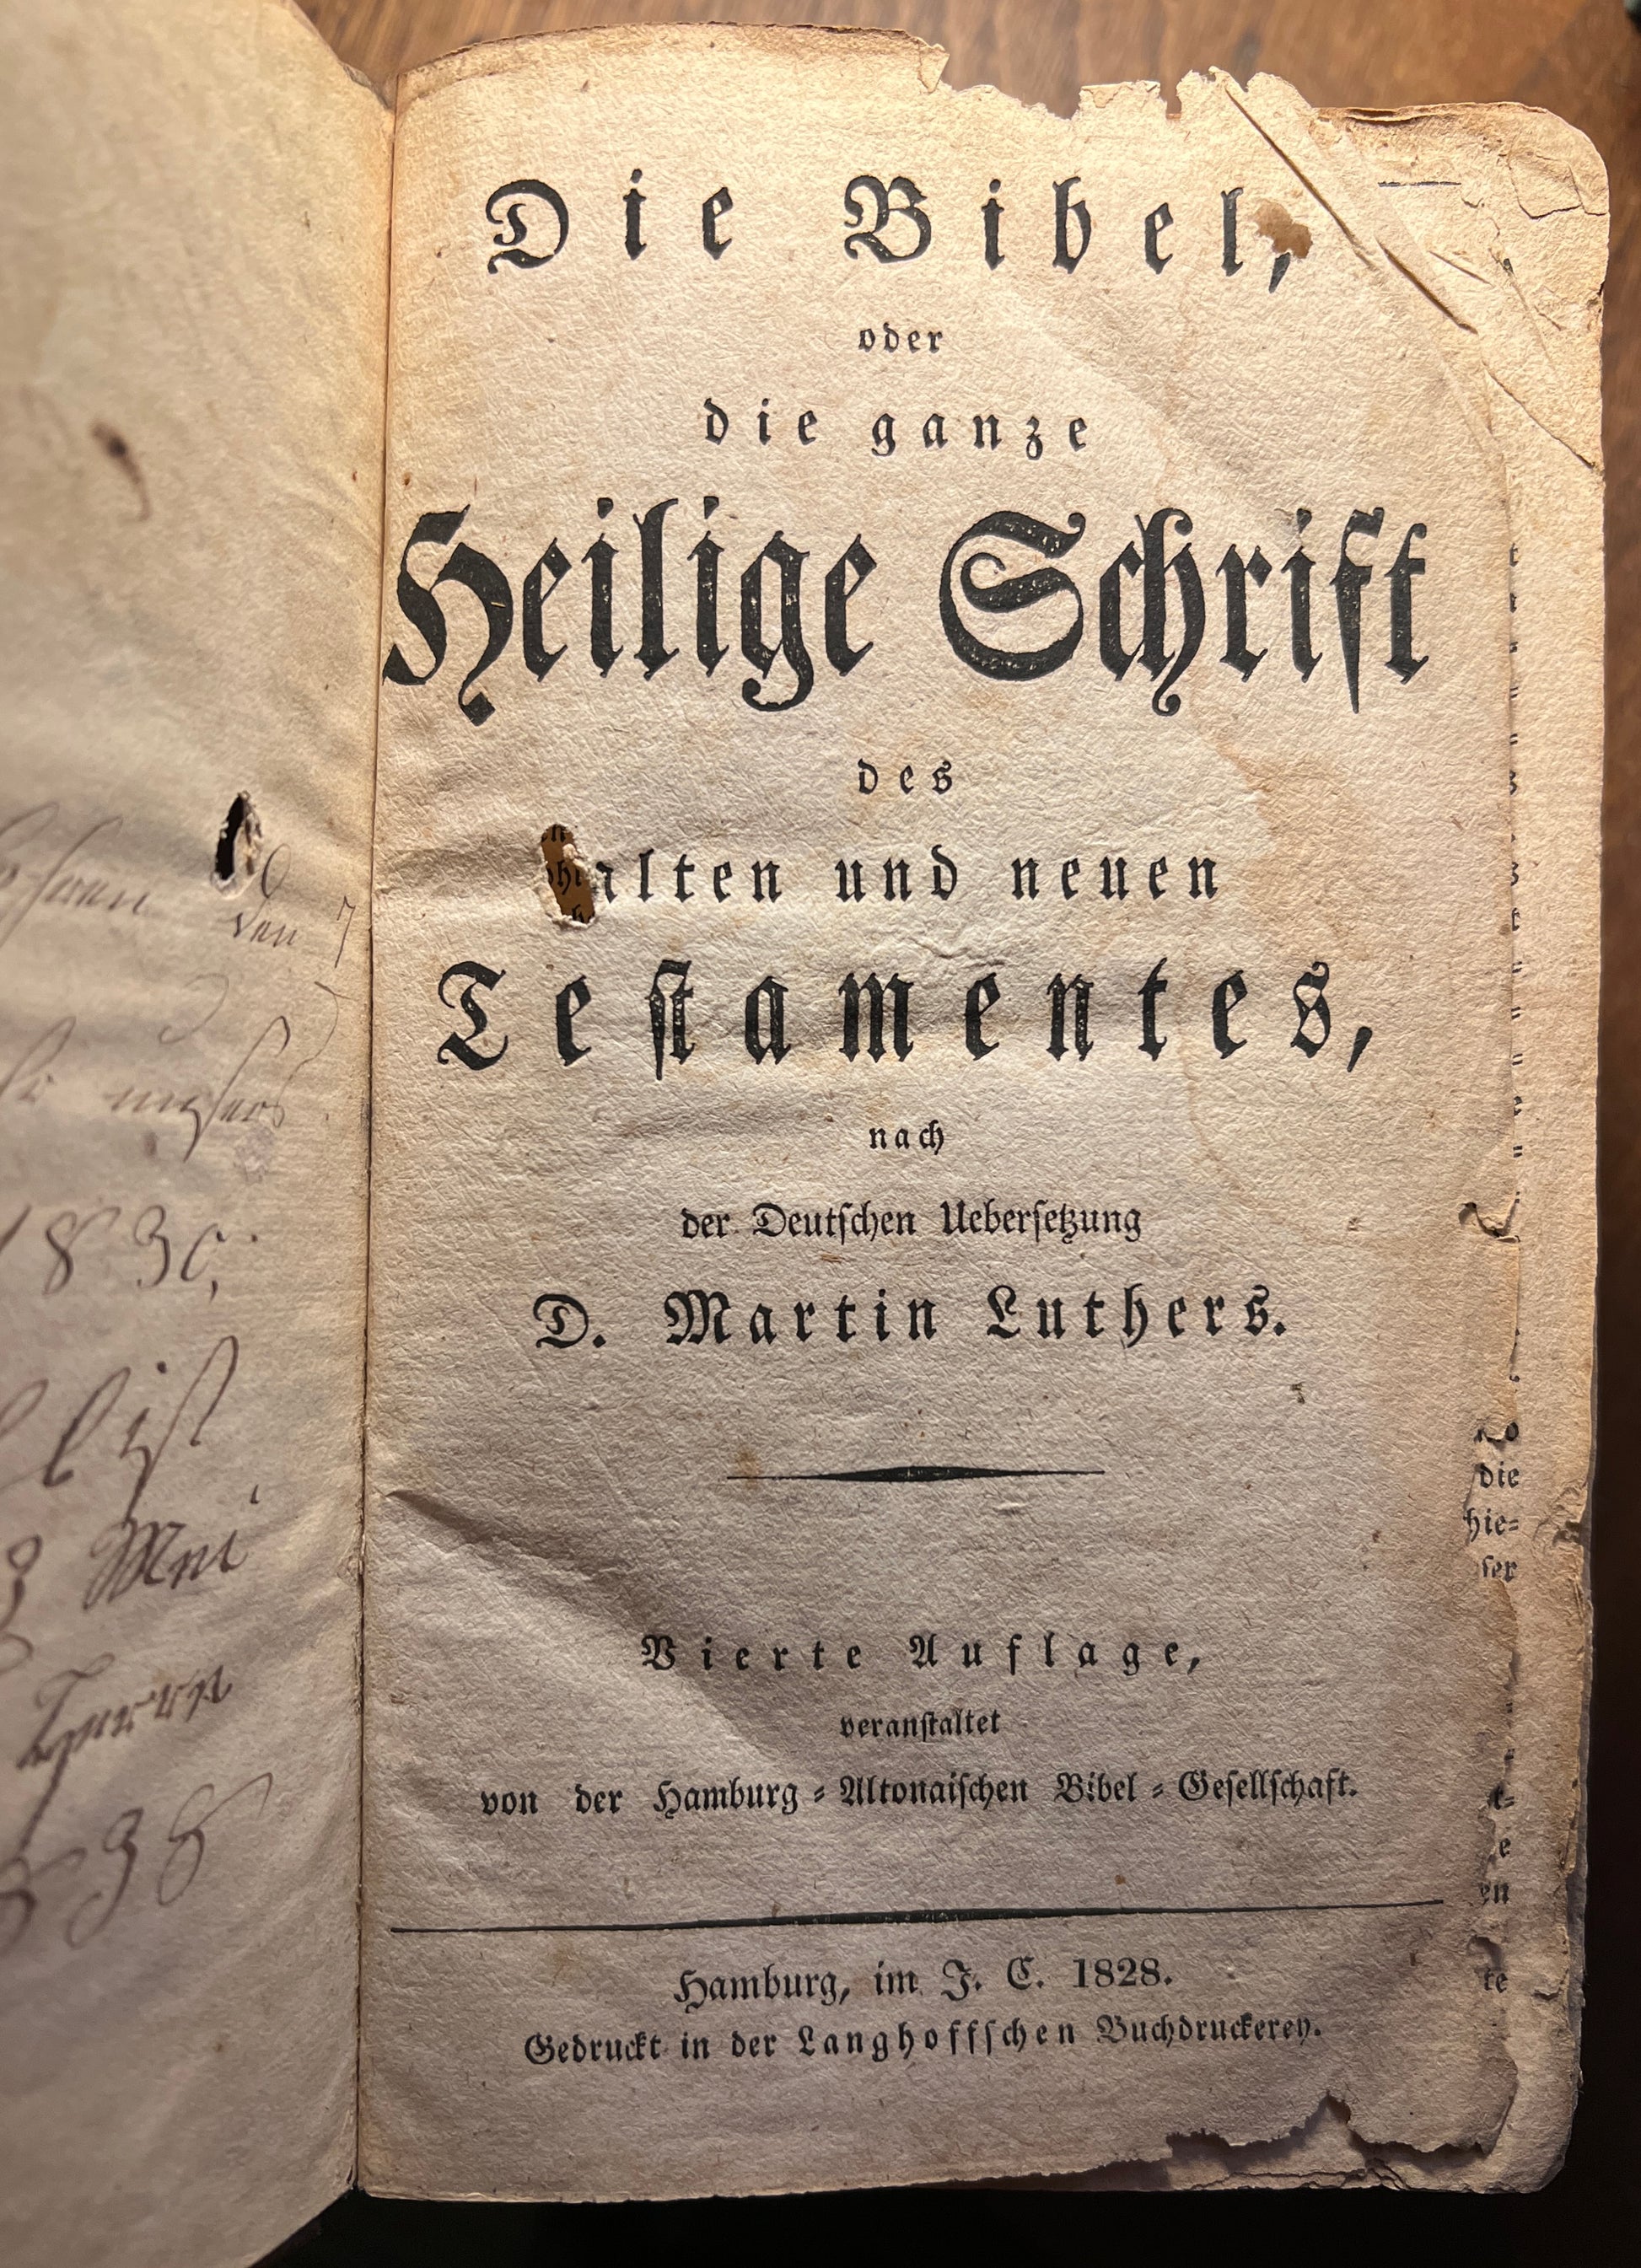 den 7
1830.
ist
Mai
38
Die Bibel,
oder
die ganze
Heilige Schrift
des
alten und neuen
Teſtamentes,
nach
der Deutſchen Ueberſetzung
D. Martin Luthers.
Vierte Auflage,
veranſtaltet
von der Hamburg⸗Altonaiſchen Bibel⸗Geſellſchaft.
Hamburg, im J. C. 1828.
Gedruckt in der Langhoffſchen Buchdruckerey.
die
hie⸗
ſer
e
en
te